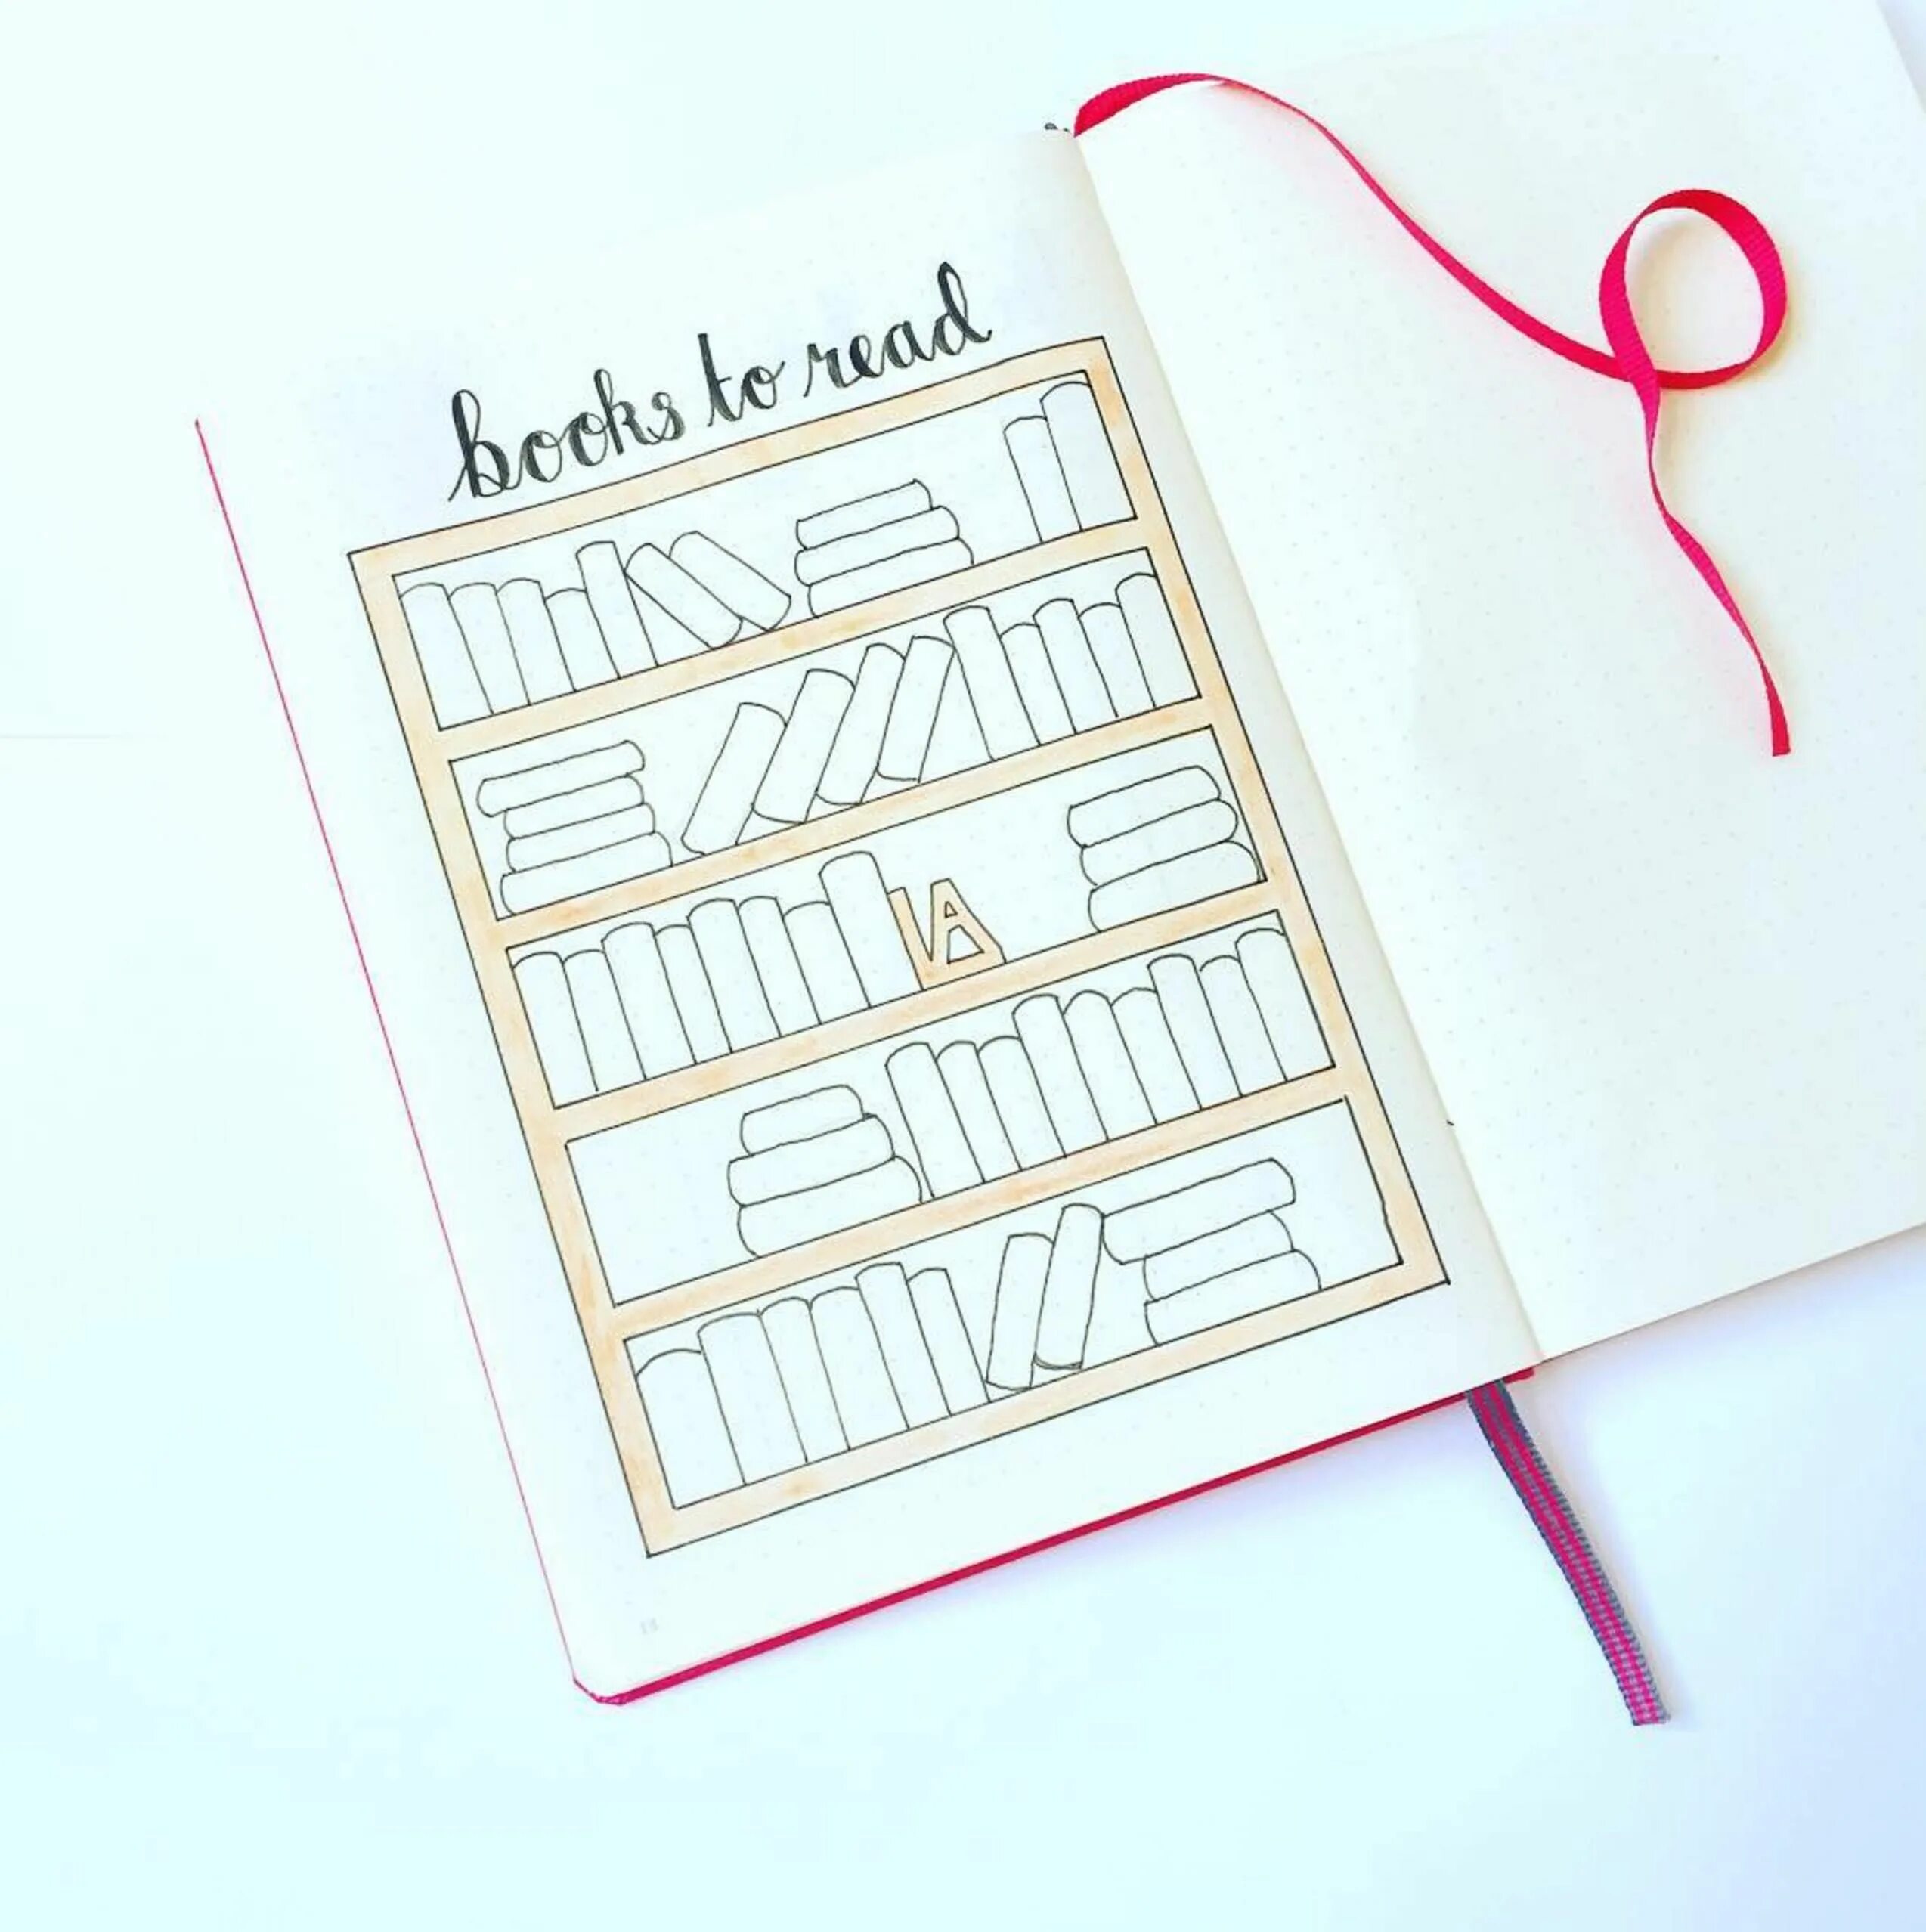 books to read
A